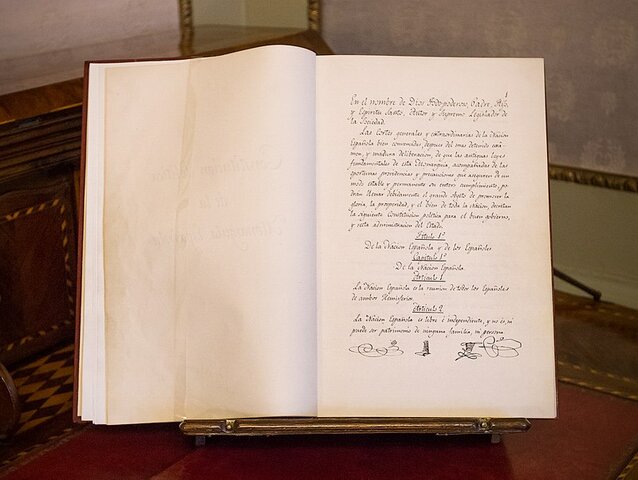 1
En el nombre de Dios Todopoderoso, Padre, Hijo,
y Espiritu Santo, Autor y Supremo Legislador de
la Sociedad.
Las Cortes generales y extraordinarias de la Nacion
Española bien convencidas, despues del mas detenido exá-
men, y madura deliberacion, de que las antiguas leyes
fundamentales de esta Monarquia, acompañadas de las
oportunas providencias y precauciones que aseguren de un
modo estable y permanente su entero cumplimiento, po-
dran llenar debidamente el grande objeto de promover la
gloria, la prosperidad, y el bien de toda la Nacion, decretan
la siguiente Constitucion politica para el buen gobierno,
y recta administracion del Estado.
Titulo 1º
De la Nacion Española y de los Españoles.
Capitulo 1º
De la Nacion Española.
Articulo 1
La Nacion Española es la reunion de todos los Españoles
de ambos Hemisferios.
Articulo 2
La Nacion Española es libre é independiente, y no es, ni
puede ser patrimonio de ninguna familia, ni persona.